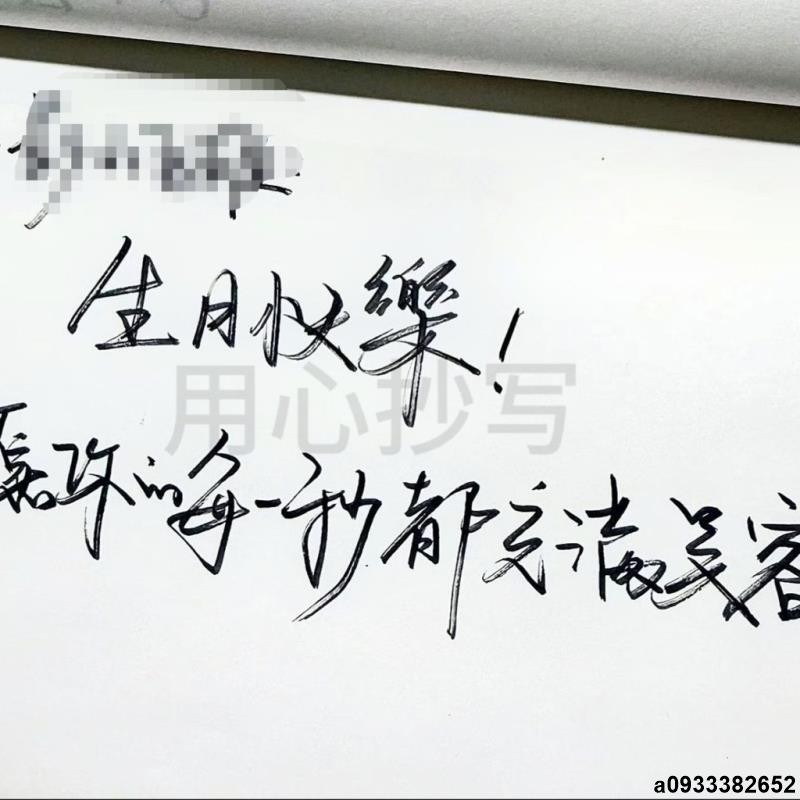 生日快樂！
用心抄写
的每一秒都充滿笑容
a0933382652